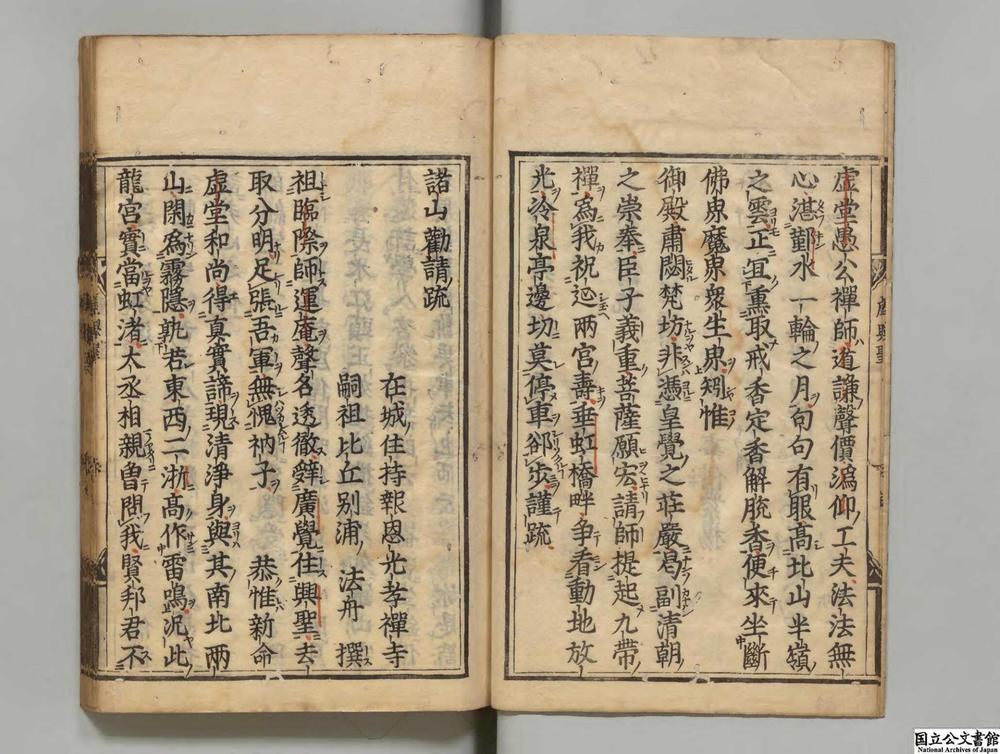 虚堂愚公禪師道謙聲價潙仰工夫法法無
心湛鄞水一輪之月句句有眼高北山半嶺
之雲正宜熏取戒香定香解脫香便來坐斷
佛界魔界衆生界矧惟
御殿肅閟梵坊非憑皇覺之莊嚴曷副清朝
之崇奉臣子義重菩薩願宏請師提起九帶
禪爲我祝延兩宮壽垂虹橋畔爭看動地放
光冷泉亭邊切莫停車卻步謹疏
諸山勸請疏
在城住持報恩光孝禪寺
嗣祖比丘別浦 法舟 撰
祖臨際師運庵聲名透徹辤廣覺住興聖去
取分明足張吾軍無愧衲子 恭惟新命
虚堂和尚得眞實諦現清淨身與其南北兩
山閑爲霧隱孰若東西二浙髙作雷鳴況此
龍宮實當虹渚太丞相親曾問我賢邦君不
国立公文書館
National Archives of Japan